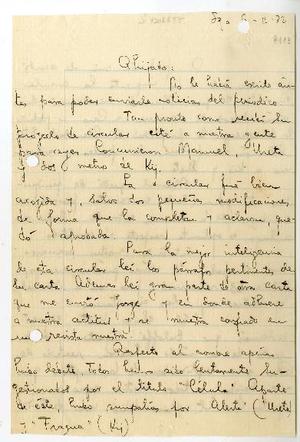 Ahijado:
No le había escrito an-
tes para poder enviarle noticias del periódico.
Tan pronto como recibí su
proyecto de circular cité a nuestra gente
para Concurrieron Manuel,
y dos metro de Ky.
La circular fué bien
acogida y, salvo dos pequeñas modificaciones,
de forma que la completan y aclaran, que-
dó aprobada.
Para la mejor inteligencia
de esta circular leí los párrafos pertinentes de
su carta. Además leí gran parte de otra carta
que me envió Jorge y en donde adhiere
a nuestra actitud y se muestra confiado en
una revista nuestra.
Respecto al nombre apenas
hubo debate. Todos habían sido lentamente su-
gestionados por el título "Célula". Aparte
de éste, hubo simpatías por Alerta (
y "Fragua" (Ky)